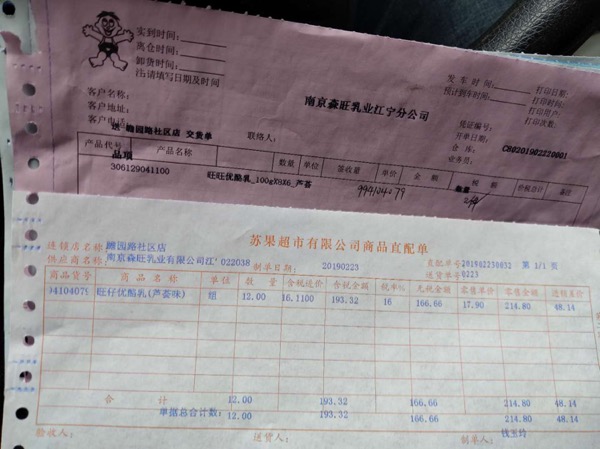 实到时间：
离仓时间：
卸货时间：
注:请填写日期及时间
发车时间： 打印日期：
预计到车时间： 打印时间：
打印用户：
打印次数：
南京森旺乳业江宁分公司
客户名称：
客户地址：
客户电话：
送 瞻园路社区店 交货单 联系人：
凭证编号：
开单日期： CH0201902220001
仓 库：
业务员：
产品代号 产品名称 数量 单位 签收量 单价 金额 税额 价税合计 备注
品项 数量
306129041100 旺旺优酪乳_100gX8X6_芦荟 994104079
苏果超市有限公司商品直配单
连锁店名称 瞻园路社区店 直配单号201902230832 第 1/1 页
供应商名称 南京森旺乳业有限公司江' 022038 制单日期： 20190223 送货单号 0223
商品货号 商品名称 单位 数量 含税进价 含税金额 税率% 无税金额 零售单价 零售金额 进销差价
94104079 旺仔优酪乳(芦荟味) 组 12.00 16.1100 193.32 16 166.66 17.90 214.80 48.14
合计 12.00 193.32 166.66 214.80 48.14
单据总合计数： 12.00 193.32 166.66 214.80 48.14
验收人： 送货人： 制单人： 钱玉玲